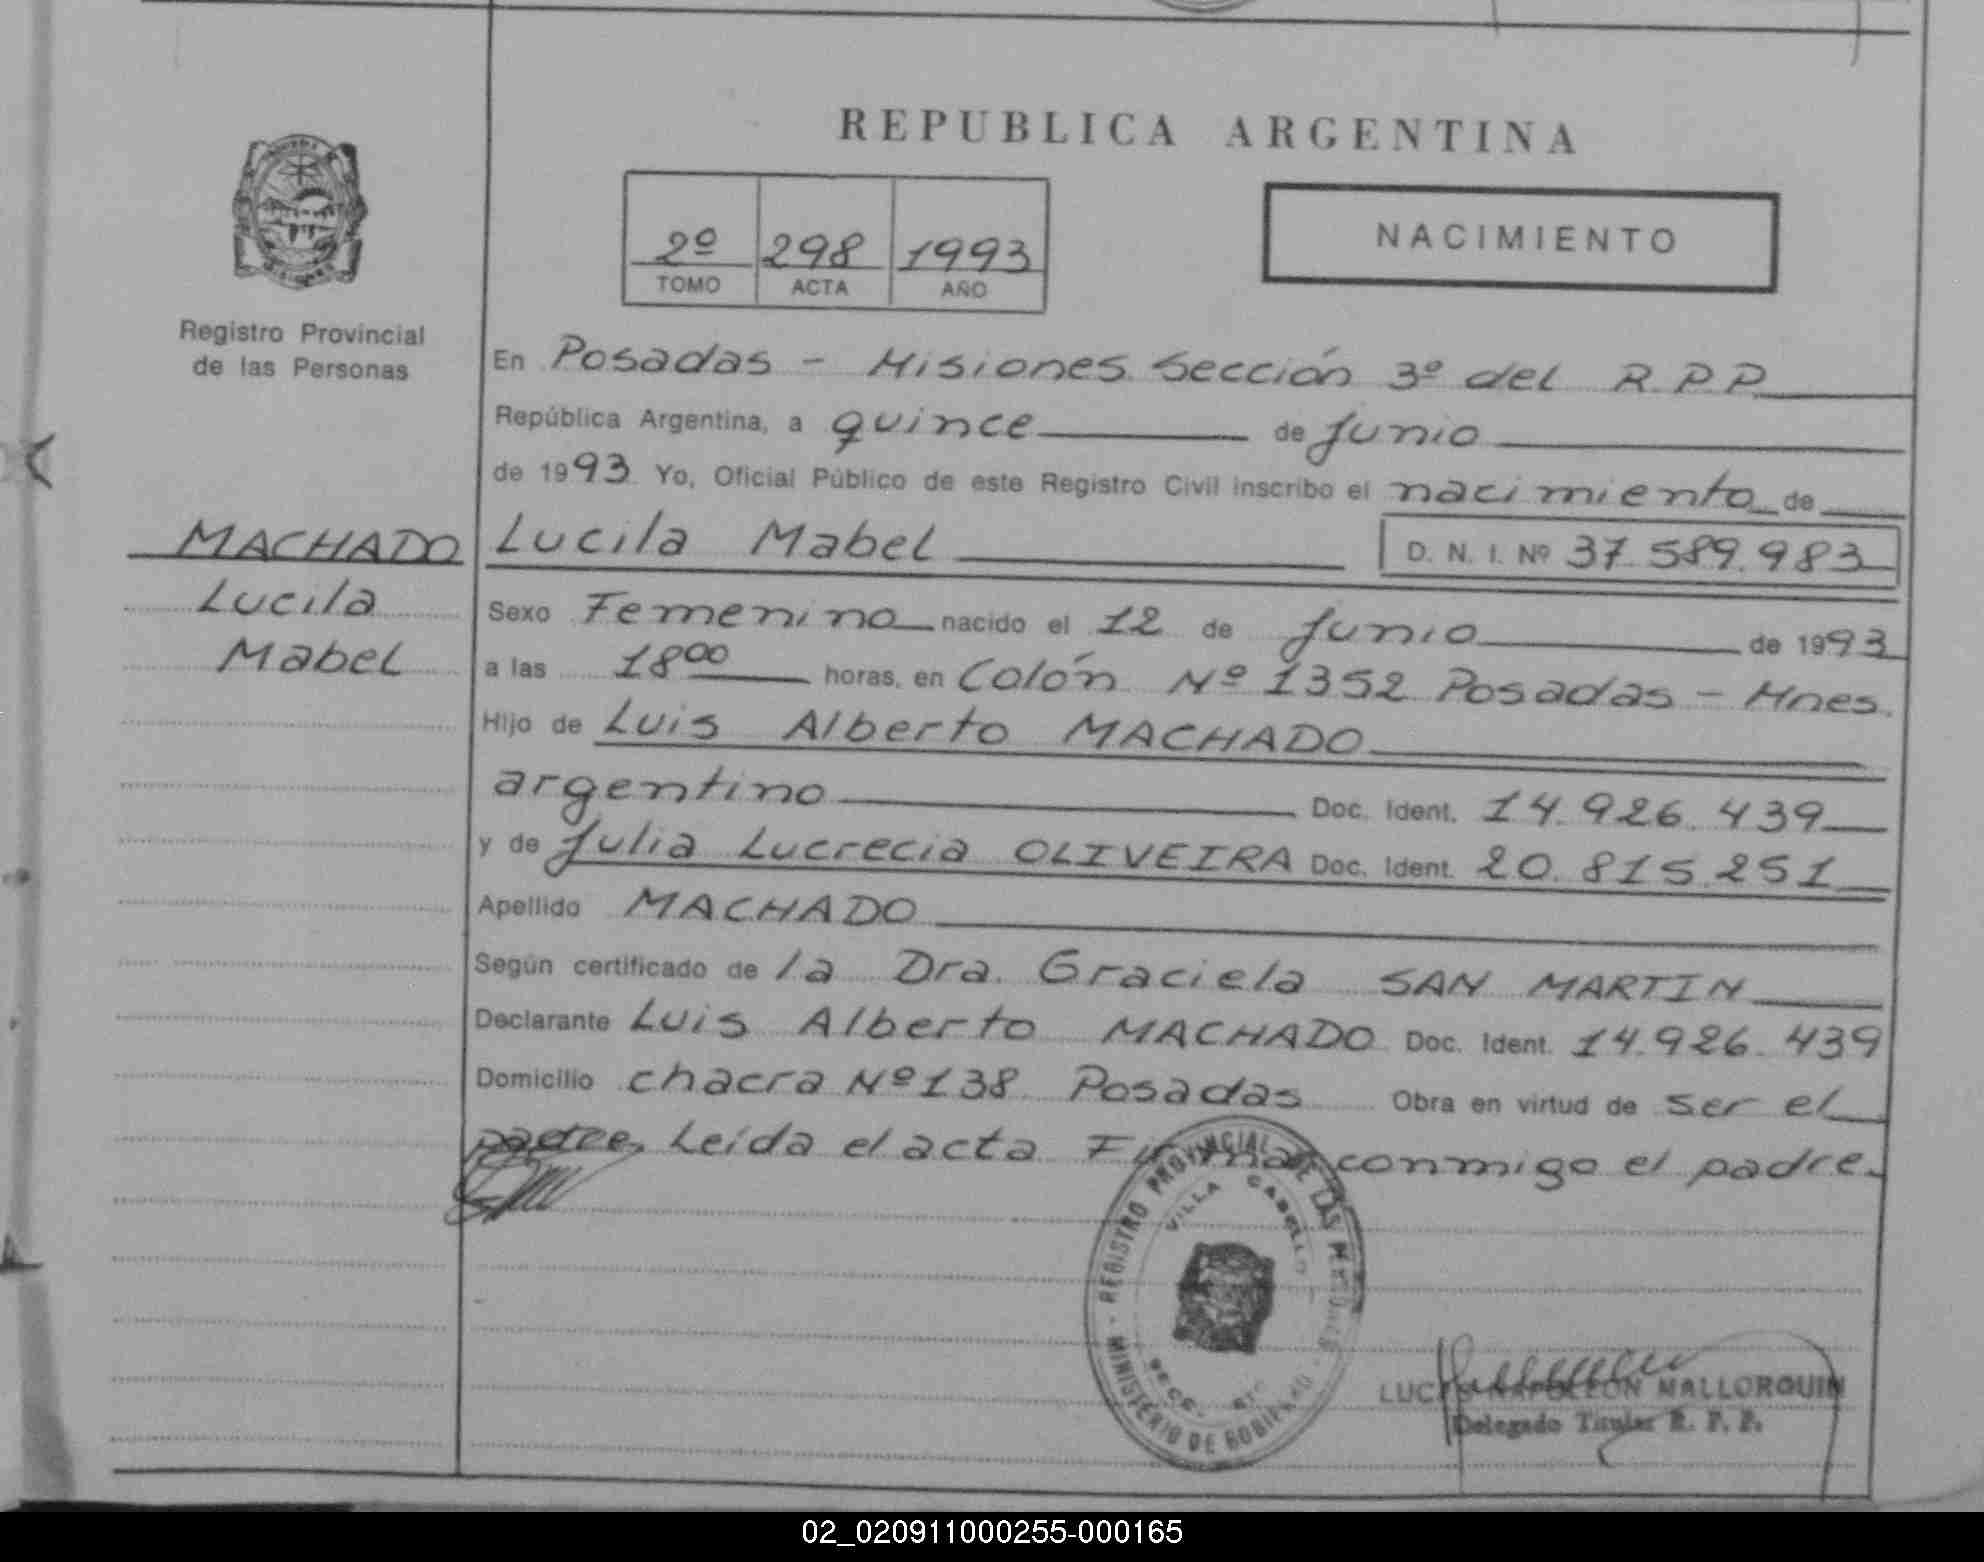 REPUBLICA ARGENTINA
2º 298 1993
TOMO ACTA AÑO
NACIMIENTO
Registro Provincial
de las Personas
En Posadas - Misiones Sección 3º del R.P.P.
República Argentina, a quince de Junio
de 1993 Yo, Oficial Público de este Registro Civil inscribo el nacimiento de
MACHADO Lucila Mabel D. N. I. Nº 37.589.983
Lucila
Mabel
Sexo Femenino nacido el 12 de Junio de 1993
a las 18ºº horas, en Colón Nº 1352 Posadas - Mnes.
Hijo de Luis Alberto MACHADO
argentino Doc. Ident. 14.926.439
y de Julia Lucrecia OLIVEIRA Doc. Ident. 20.815.251
Apellido MACHADO
Según certificado de la Dra. Graciela SAN MARTIN
Declarante Luis Alberto MACHADO Doc. Ident. 14.926.439
Domicilio chacra Nº 138 Posadas Obra en virtud de ser el
padre. Leída el acta Firma conmigo el padre.
REGISTRO PROVINCIAL DE LAS PERSONAS
VILLA CABELLO
SECC.
MINISTERIO DE GOBIERNO
LUCAS NAPOLEON MALLORQUIN
Delegado Titular R. P. P.
02_020911000255-000165